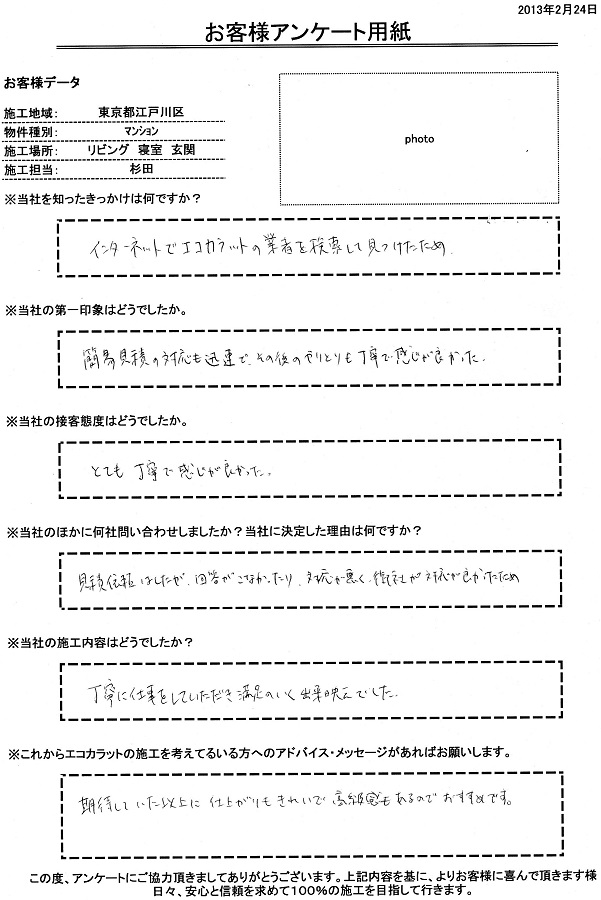 2013年2月24日
お客様アンケート用紙
お客様データ
施工地域: 東京都江戸川区
物件種別: マンション
施工場所: リビング 寝室 玄関
施工担当: 杉田
photo
※当社を知ったきっかけは何ですか?
インターネットでエコカラットの業者を検索して見つけたため
※当社の第一印象はどうでしたか。
簡易見積の対応も迅速で、その後のやりとりも丁寧で感じが良かった。
※当社の接客態度はどうでしたか。
とても丁寧で感じが良かった。
※当社のほかに何社問い合わせしましたか?当社に決定した理由は何ですか?
見積依頼はしたが、回答がこなかったり、対応が悪く、御社が対応が良かったため
※当社の施工内容はどうでしたか?
丁寧に仕事をしていただき満足のいく出来映えでした。
※これからエコカラットの施工を考えてるいる方へのアドバイス・メッセージがあればお願いします。
期待していた以上に仕上がりもきれいで高級感もあるのでおすすめです。
この度、アンケートにご協力頂きましてありがとうございます。上記内容を基に、よりお客様に喜んで頂きます様
日々、安心と信頼を求めて100%の施工を目指して行きます。